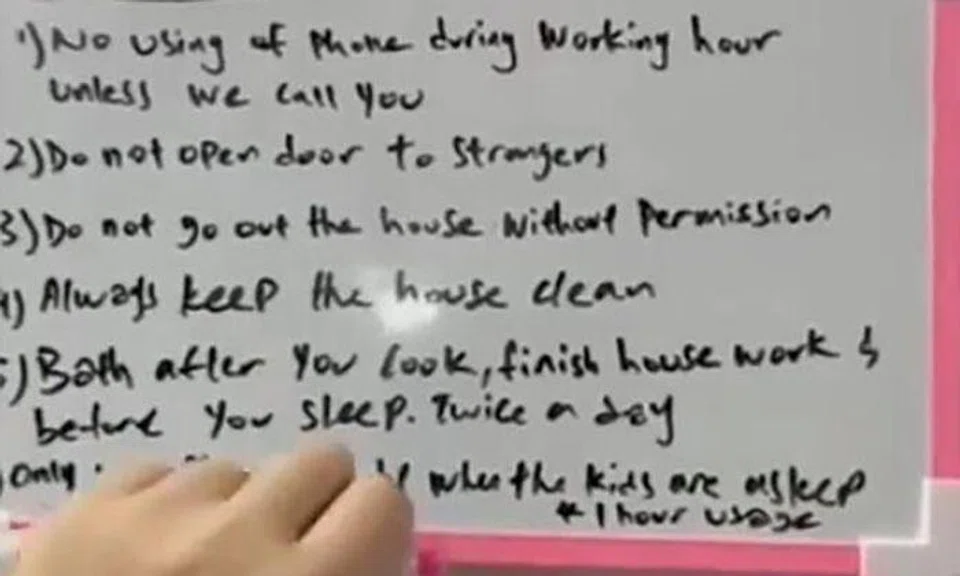 1) No using of phone during working hour
unless we call you
2) Do not open door to strangers
3) Do not go out the house without permission
4) Always keep the house clean
5) Bath after you cook, finish house work &
before you sleep. Twice a day
Only when the kids are asleep
* 1 hour usage